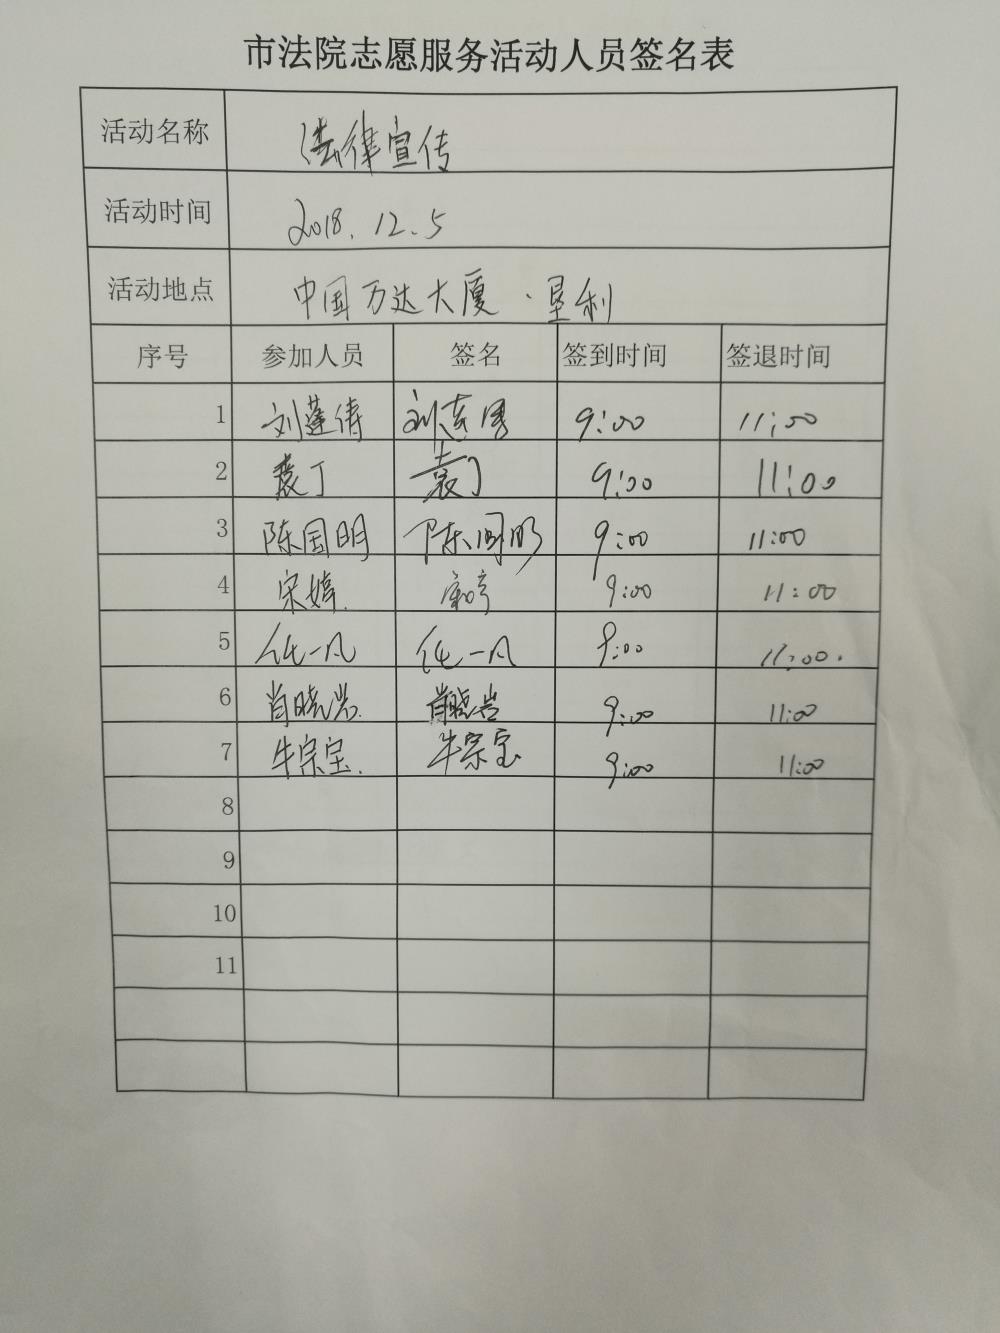 市法院志愿服务活动人员签名表
活动名称 法律宣传
活动时间 2018.12.5
活动地点 中国万达大厦·垦利
序号 参加人员 签名 签到时间 签退时间
1 刘蓬 9:00 11:00
2 袁丁 袁丁 9:00 11:00
3 陈国明 陈国明 9:00 11:00
4 宋婷. 宋婷 9:00 11:00
5 任一凡 任一凡 9:00 11:00.
6 肖晓岩. 肖晓岩 9:00 11:00
7 牛宗宝. 牛宗宝 9:00 11:00
8
9
10
11